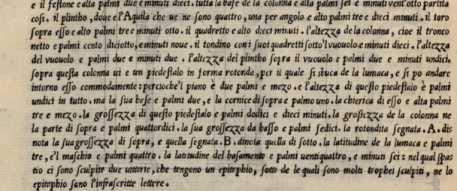 e il festone e alta palmi due e minuti dieci. tutta la base de la colonna e alta palmi sei e minuti vent'otto partita
cosi. il plintho, doue e l'Aquila che ue ne sono quattro, una per angolo e alto palmi tre e dieci minuti. il toro
sopra esso e alto palmi tre e minuti otto. il quadretto e alto dieci minuti. l'altezza de la colonna, cioe il tronco
netto e palmi cento diciotto, e minuti noue. il tondino con i suoi quadretti sotto'l vuouolo e minuti dieci. l'altezza
del vuouolo e palmi due e minuti due. l'altezza del plintho sopra il vuouolo e palmi due e minuti undici.
sopra questa colonna ui e un piedestalo in forma rotonda, per il quale si sbuca de la lumaca, e si po andare
intorno esso commodamente: percioche'l piano è due palmi e mezo. e l'altezza di questo piedestalo è palmi
undici in tutto. ma la sua base e palmi due, e la cornice di sopra e palmo uno. la chierica di esso e alta palmi
tre e mezo. la grossezza di questo piedestalo e palmi dodici e dieci minuti. la grossezza de la colonna ne
la parte di sopra e palmi quattordici. la sua grossezza da basso e palmi sedici. la rotondita segnata. A. di=
nota la sua grossezza di sopra, e quella segnata. B. dinota quella di sotto. la latitudine de la lumaca e palmi
tre, e'l maschio e palmi quattro. la latitudine del basamento e palmi uentiquattro, e minuti sei: nel qual spa=
tio ci sono sculpite due uittorie, che tengono un epitaphio, sotto de le quali sono molti trophei sculpiti, ne lo
epitaphio sono l'infrascritte lettere.